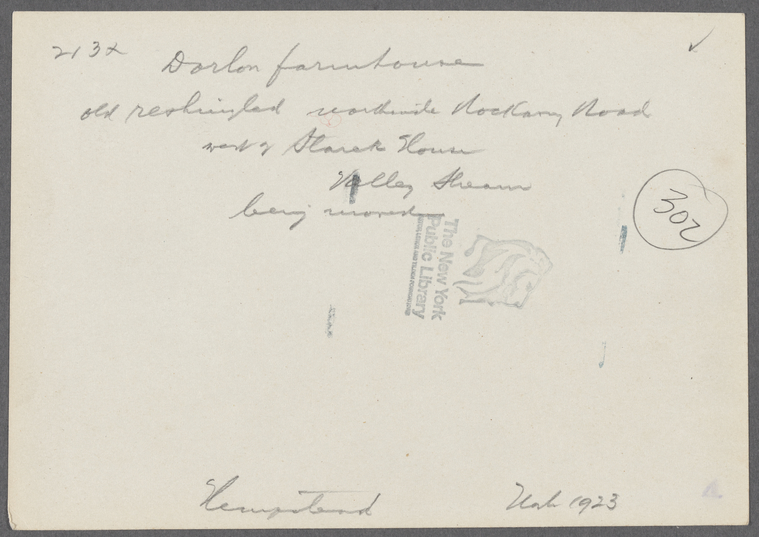 213x
Dorlon farmhouse
old reshingled northside Rockaway Road
west of Starek House
Valley Stream
being moved
302
The New York
Public Library
Hempstead
1923